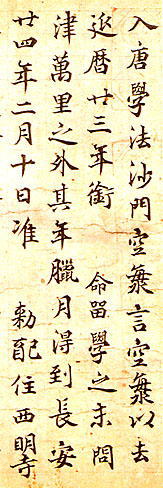 入唐學法沙門空海言空海以去
延暦廿三年銜　命留學之末問
津萬里之外其年臘月得到長安
廿四年二月十日准　勅配住西明寺